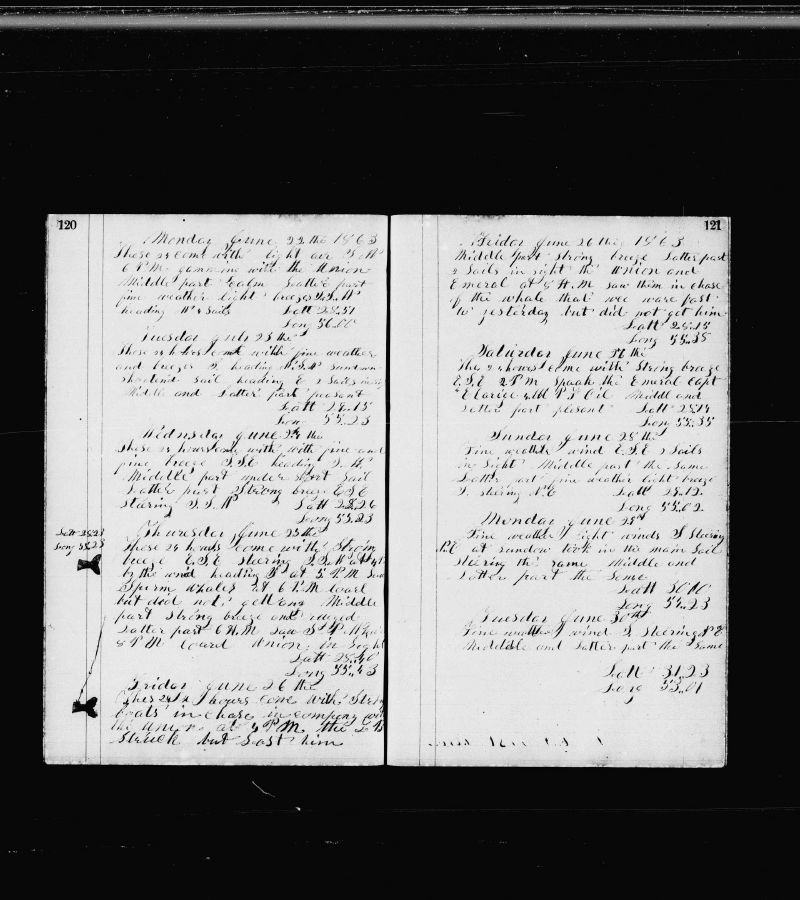 120
Monday June 22 the 1863
These 24 Come with light air
6 P.M. gamming with the Union
Middle part Calm Latter part
fine weather light breeze S.S.W
heading W 4 Sails Latt 28.51
Long 56.00
Tuesday July 23 the
These 24 hours come with fine weather
and breeze heading sundown
shortend Sail heading E 2 Sails in sight
Middle and Latter part plesant
Latt 28.15
Long 55.23
Wednsday June 24 the
These 24 hours with with fine and
fine breeze S.S.E heading S.W.
Middle part under short Sail
Latter part Strong breeze E.S.E
Steering S.S.W Latt 28.26
Long 55.23
Latt 28.23
Long 55.23
Thuresday June 25 the
these 24 hours come with Strom
breeze E.S.E Steering S.S.W at
by the wind heading at 5 P.M Saw
Spurm whales at 6 P.M loard
but did not gett one Middle
part Strong breeze and ruged
Latter part 6 A.M saw
8 P.M loard Union in Sight
Latt 28.40
Long 55.43
Friday June 26 the
this 24 hours come with Strong
boats in chase in company with
the Union at 4 P.M. the L B
Struck but Lost him
121
Friday June 26 the 1863
Middle part Strong breeze Latter part
2 Sails in sight the Union and
Emeral at 8 A.M saw them in chase
of the whale that wee ware fast
to yesterday but did not get him
Latt 28.15
Long 55.35
Saturday June 27 the
The 24 hours come with Strong breeze
E.S.E 2 P.M Spoak the Emeral Capt
Oil Middl and
Latter part plesant Latt 28.14
Long 55.35
Sunday June 28 the
Fine weather wind E.S.E 2 Sails
in Sight Middle part the Same
Latter part fine weather light breeze
S. steering N.E Latt 29.12
Long 55.02
Monday June 29
Fine weather light winds S Steering
N.E at sundow took in the main Sail
Steering the same Middle and
Latter part the Same
Latt 30.10
Long 54.23
Tuesday June 30 th
Fine weather wind S Steering N E
Middle and Latter part the Same
Latt 31.23
Long 53.01